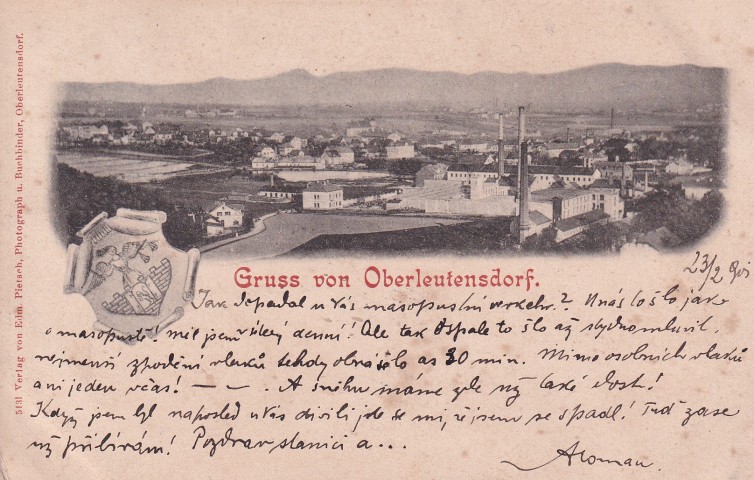 5131 Verlag von Edm. Pietsch, Photograph u. Buchbinder, Oberleutensdorf.
Gruss von Oberleutensdorf.
23/2
Jak dopadal u Vás masopustní verkehr? U nás to šlo jak
o masopustě! měl jsem denní! Ale tak ospale to šlo až
nejmenší zpoždění vlaků tehdy obnášelo as 30 min. Mimo osobních vlaků
ani jeden včas! — — . A sněhu máme zde už také dost!
Když jsem byl naposled u Vás divili jste se mi, že jsem se spadl! Teď zase
už přibírám! Pozdrav stanici a...
Roman.